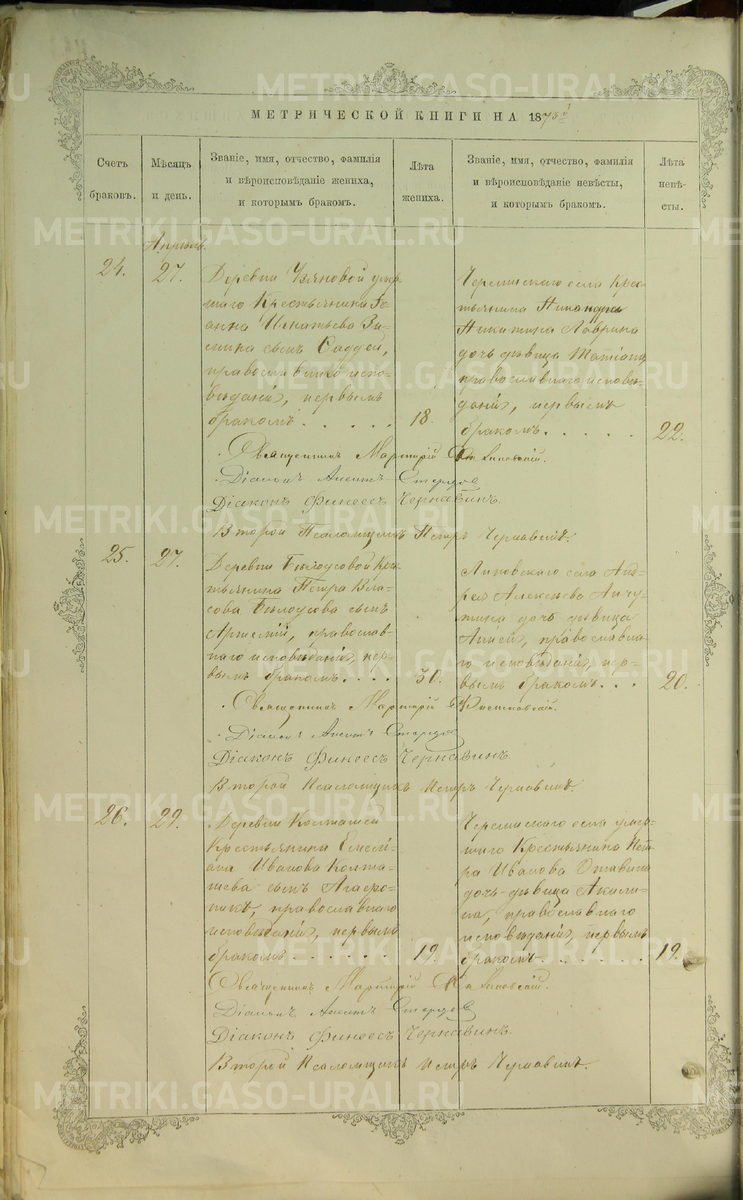 МЕТРИЧЕСКОЙ КНИГИ НА 187
Счетъ браковъ.
Мѣсяцъ и день.
Званіе, имя, отчество, фамилія
и вѣроисповѣданіе жениха,
и которымъ бракомъ.
Лѣта
жениха.
Званіе, имя, отчество, фамилія
и вѣроисповѣданіе невѣсты,
и которымъ бракомъ.
Лѣта
невѣ-
сты.
Апрѣль
24. 27.
Деревни умер
шаго Крестьянина Іо
анна Игнатьева
сынъ
православнаго испо
вѣданія, первымъ
бракомъ. . . . . 18.
Черемисскаго села Крес
тьянина Никандра
Никитина Лаврина
дочь дѣвица
православнаго исповѣ
данія, первымъ
бракомъ. . . . . 22.
Священникъ Мартирій
Діаконъ
Діаконъ Финеесъ Чернавинъ.
Второй Псаломщикъ Петръ
25. 27.
Деревни Белоусовой Кре
тьянина Петра Вла
сова Белоусова сынъ
православ
наго исповѣданія, пер
вымъ бракомъ. . . . 30.
Липовскаго села Анд
рея Алексѣева Анчу
тина дочь дѣвица
православна
го исповѣданія, пер
вымъ бракомъ. . . 20.
Священникъ Мартирій
Діаконъ
Діаконъ Финеесъ Чернавинъ
Второй Псаломщикъ Петръ
26. 29.
Деревни Колташей
Крестьянина Емелі
ана Иванова Колта
шева сынъ Агафо
никъ, православнаго
исповѣданія, первымъ
бракомъ . . . . . . 19.
Черемисскаго села умер
шаго Крестьянина Пет
ра Иванова
дочь дѣвица Акили
на, православнаго
исповѣданія, первымъ
бракомъ . . . . . . 19.
Священникъ Мартирій
Діаконъ
Діаконъ Финеесъ Чернавинъ.
Второй Псаломщикъ Петръ
METRIKI.GASO-URAL.RU